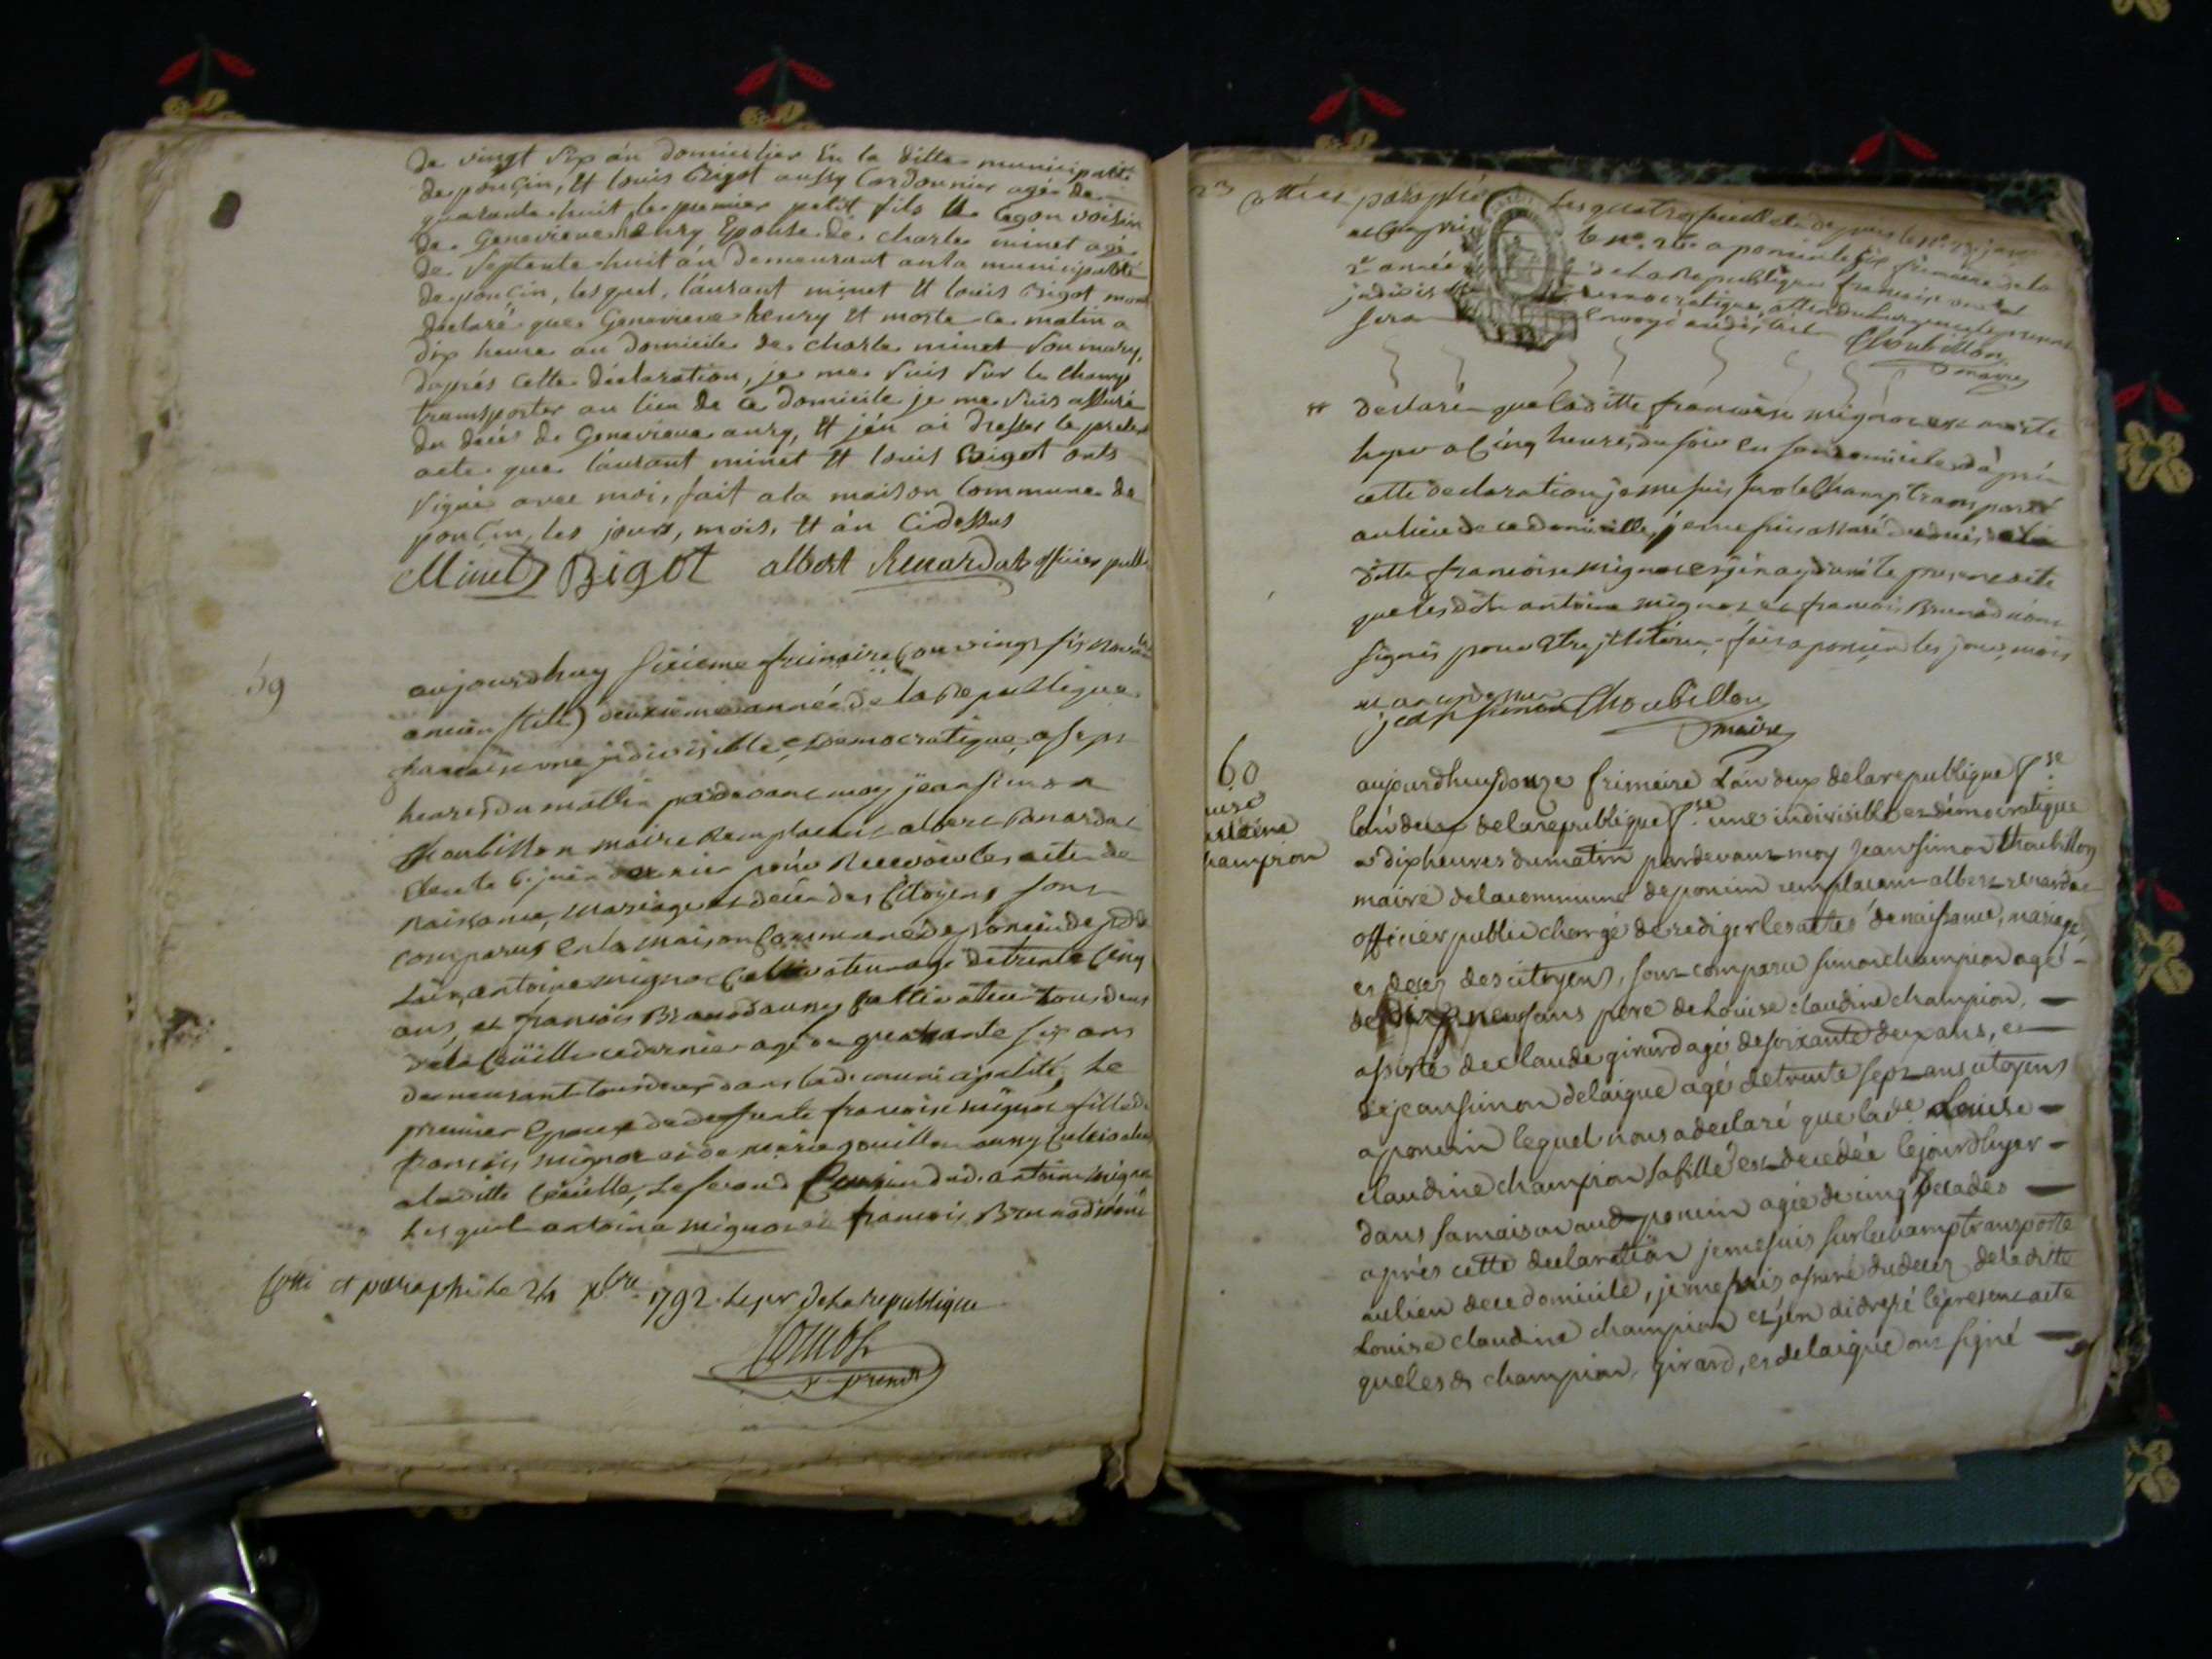 de vingt six án domicilier En la ditte municipalité
de ponçin, et louis Bigot aussy Cordonnier agé de
quarante huit le premier petit fils et le segon voisin
de Genevieve henry Epouse de charle minet agé
de septente huit án demeurant anla municipalité
de ponçin, lesquel, láurant minet et louis Bigot mont
declaré que Genevieve henry et morte ce matin a
dix heure au domicile de charle minet son mary,
dáprés cette déclaration, je me suis sur le champ
transporter au lieu de ce domicile je me suis assuré
du décés de Genevieve anry, et jén ai dresser le present
acte que láurant minet et louis Bigot onts
signé avec moi, fait a la maison Commune de
ponçin, les jours, mois, et án Cidessus
Minet Bigot albert Renardat officier publi
59
aujourdhuy sixieme frimaire (ou vingt six novembre
ancien stille) deuxieme année de la Republique
francaise une jndivisible, & Democratique, a sept
heures du mattin pardevant moy jean simon
Choubillon maire Remplacant albert Renardat
Elu le 6. juin dernier pour Recevoir les actes de
Naissance, mariage et décés des Citoyens sont
comparus En la maison Commune de poncin
antoine mignot Cultivateur agé de trente Cinq
ans, et francois Brunod aussy Cultivateur tous deux
de la Cüeille ce dernier agé de quarante six ans
demeurant tous deux dans lad. municipalité, Le
premier Epoux de defunte francoise mignot fille de
francois mignot et de marie gouillon aussy Cultivateur
a laditte Cüeille, Le second Cousin dud. antoine mignot
Lesquel antoine mignot et francois Brunod mont
Cotté et paraphé Le 24 xbre 1792. Le 1er De La Republique
23
Cotté et paraphé les quatre feuillets depuis le no. 23 jusques
et Compris le no. 26. a poncin le six frimaire de la
2e année de la Republique francaise une et
jndivisible democratique, attendu lurgence
sera Envoyé au district Choubillon
maire
declaré que laditte francoise mignot est morte
hyer a Cinq heures du soir en son domicile dáprés
cette declaration je me suis sur le Champ transporté
au lieu de ce domicille, je me suis assuré du décés de la
ditte francoise mignot et jén ay dressé le present acte
que lesdits antoine mignot et francois Brunod nont
signés pour Etre jlliterés, fait a poncin les jour, mois
et an cy dessus
jean simon Choubillon
maire
60
Louise
claudine
champion
aujourdhuy douze frimaire Lán deux de la republique fse
lán deux de la republique fse. une indivisible et démocratique
a dix heures du matin pardevant moy jean simon thoubillon
maire de la commune de poncin remplacant albert renardat
officier public chargé de rediger les actes de naissance, mariage,
et deces des citoyens, sont comparu simon champion agé -
de dix neuf ans pere de Louise claudine champion, -
assisté de claude girard agé de soixante deux ans, et -
de jean simon delaigue agé de trente sept ans citoyens
a poncin lequel nous a declaré que lade. Louise -
claudine champion sa fille est decedée le jour dhyer -
dans sa maison aud. poncin agée de cinq decades -
aprés cette declaration je me suis sur le champ transporté
au lieu de ce domicile, je me suis assuré du deces de la ditte
Louise claudine champion et jén ai dressé le present acte
que lesds champion, girard, et delaigue ont signé -